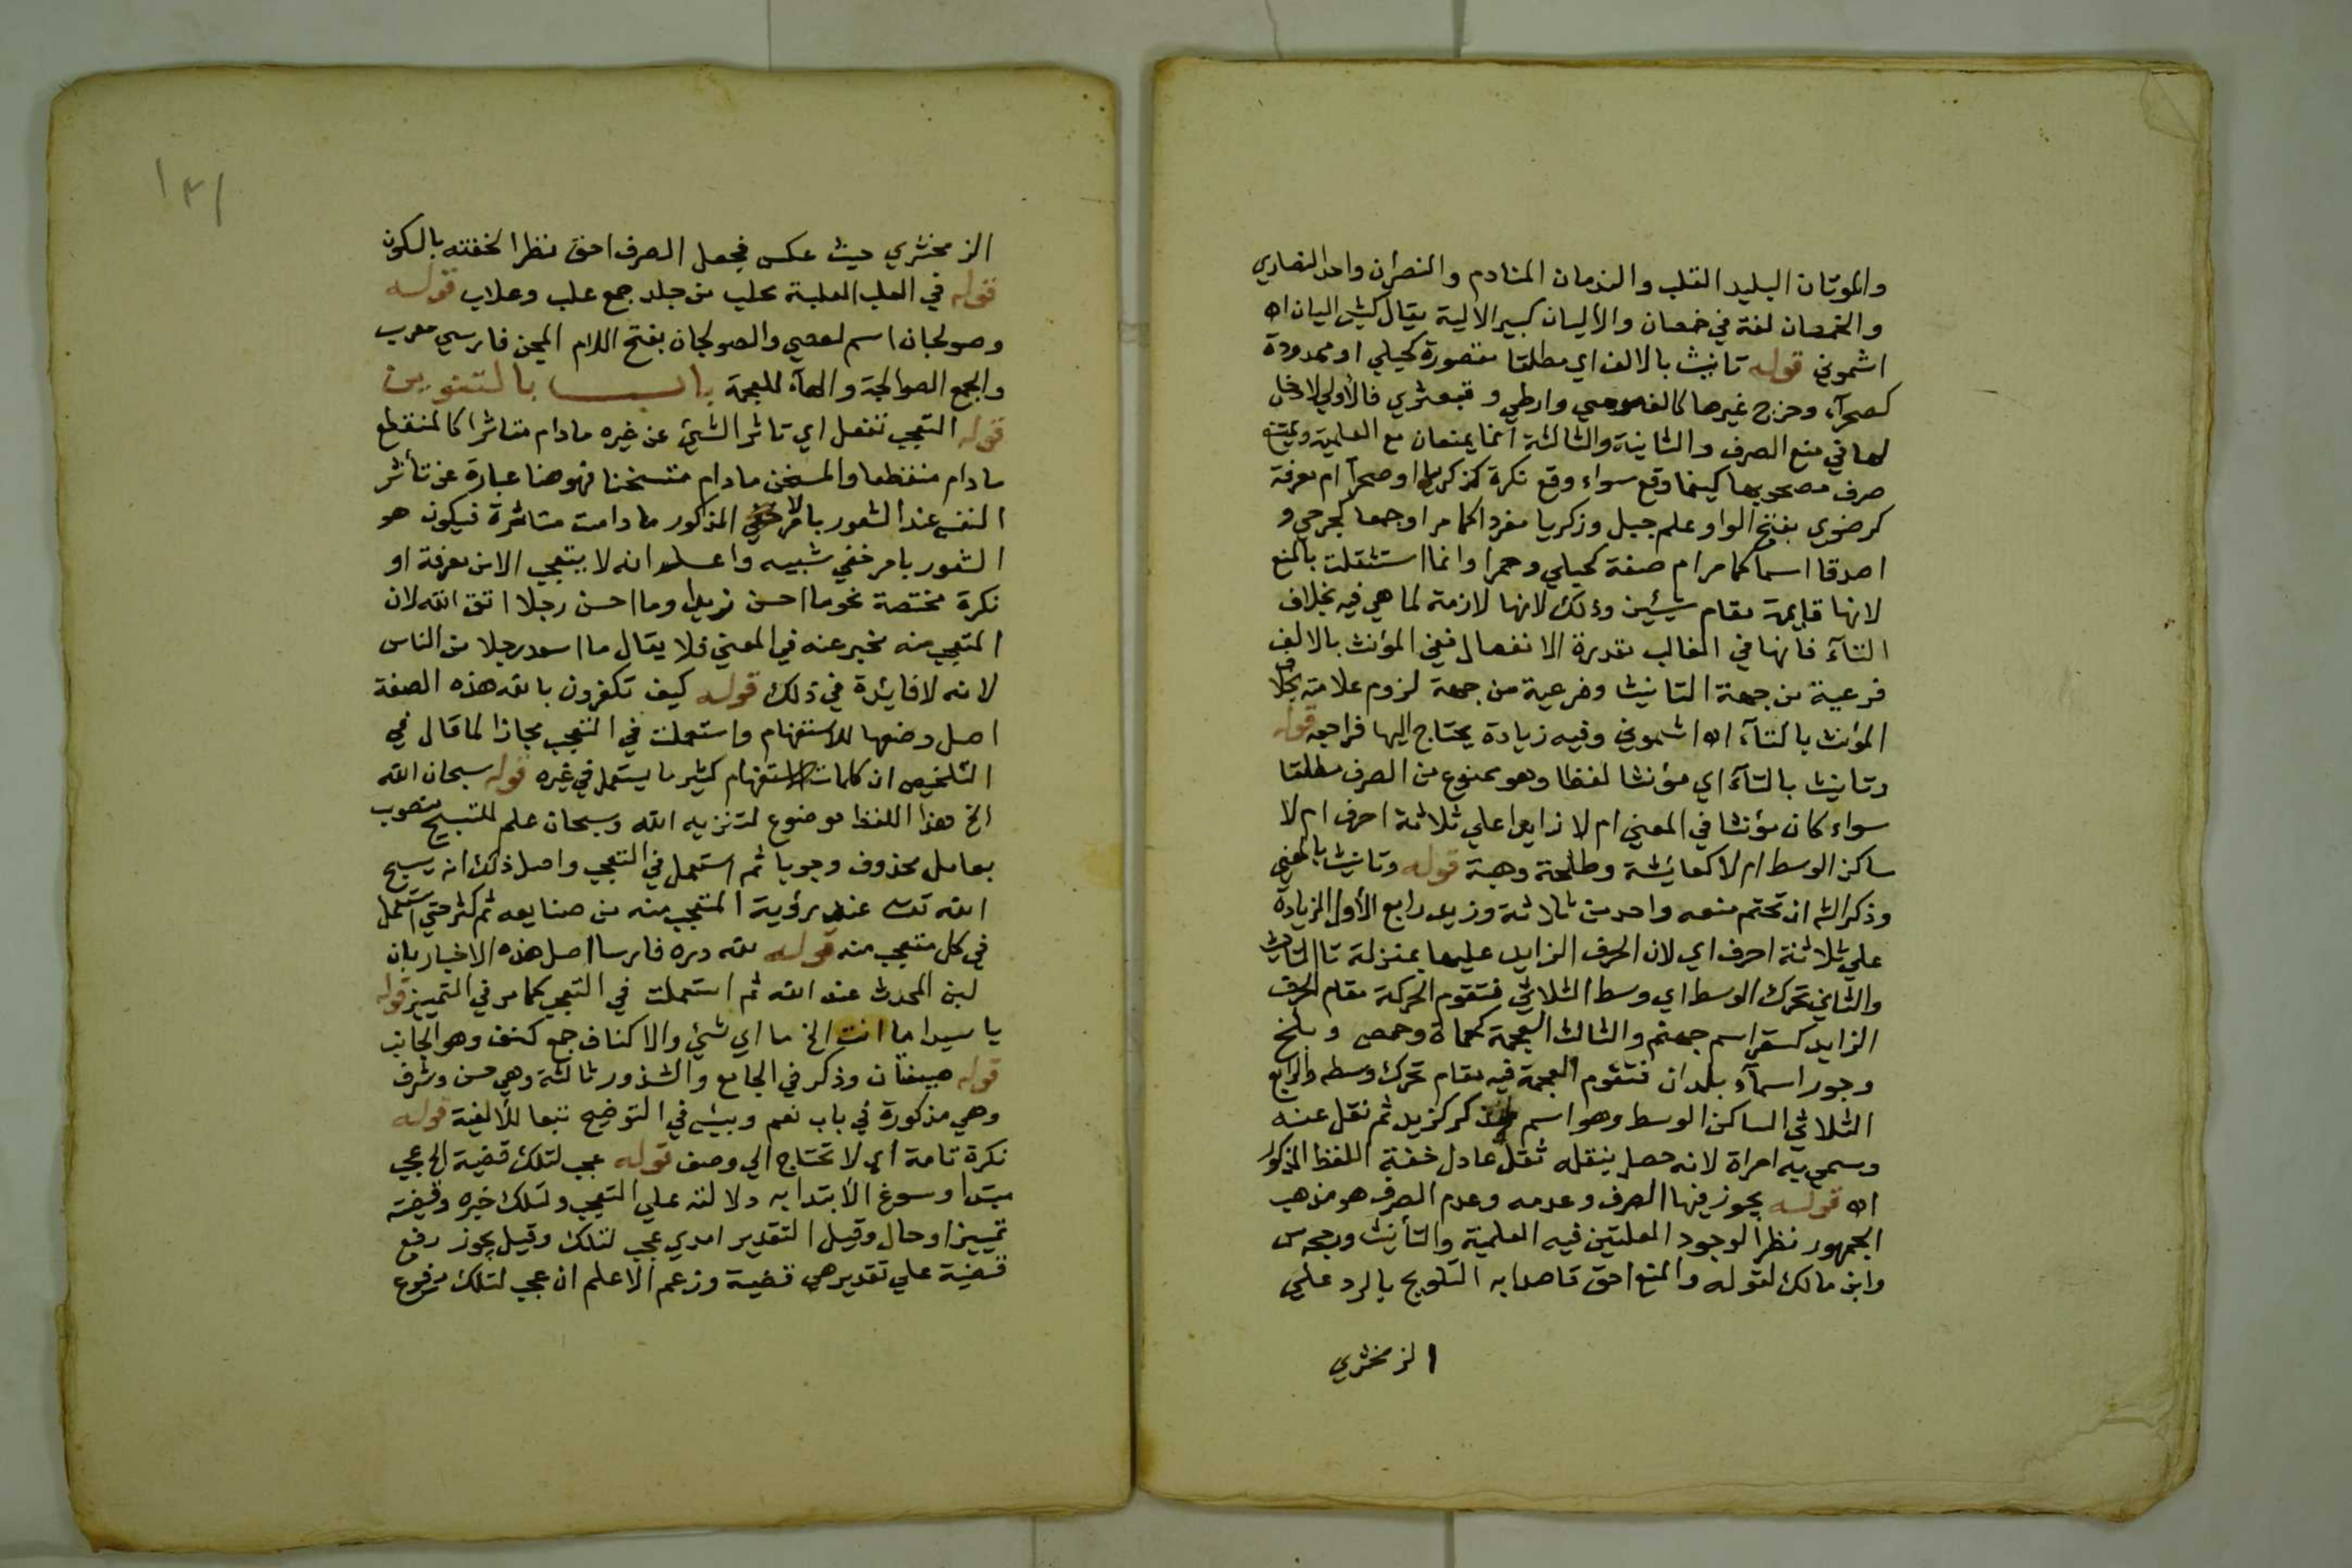 والموتان البليد القلب والندمان المنادم والنصران واحد النصارى
والخمصان لغة في خمصان والاليان كبير الالية يقال كبش اليان اه
اشموني قوله تانيث بالالف اي مطلقا مقصورة كحبلي او ممدودة
كصحرآء وخرج غيرها كالف موسي وارطي وقبعثري فالاولي لا دخل
لها في منع الصرف والثانية والثالثة انما يمنعان مع العلمية ويمتنع
صرف مصحوبها كيفما وقع سواء وقع نكرة كذكري او صحرآ ام معرفة
كرضوي بفتح الواو علم جبل وزكريا مفردا كما مر او جمعا كجرحي و
اصدقا اسما كما مر ام صفة كحبلي وحمرا وانما استقلت بالمنع
لانها قايمة مقام شيئين وذلك لانها لازمة لما هي فيه بخلاف
التآء فانها في الغالب مقدرة الانفصال ففي المؤنث بالالف
فرعية من جهة التانيث وفرعية من جهة لزوم علامته بخلاف
المؤنث بالتآء اه اشموني وفيه زيادة يحتاج اليها فراجعه قوله
وتانيث بالتآء اي مؤنثا لفظا وهو ممنوع من الصرف مطلقا
سواء كان مؤنثا في المعني ام لا زايدا علي ثلاثة احرف ام لا
ساكن الوسط ام لا كعايشة وطلحة وهبة قوله وتانيث بالمعني
وذكر الش ان تحتم منعه واحد من ثلاثة وزيد رابع الأول الزيادة
علي ثلاثة احرف اي لان الحرف الزايد عليها بمنزلة تا التانيث
والثاني تحرك الوسط اي وسط الثلاثي فتقوم الحركة مقام الحرف
الزايد كسقر اسم جهنم والثالث العجمة كحماة وحمص وبلخ
وجور اسمآء بلدان فتقوم العجمة فيه مقام تحرك وسطه والرابع
الثلاثي الساكن الوسط وهو اسم مذكر كزيد ثم نقل عنه
وسمي به امراة لانه حصل بنقله ثقل عادل خفة اللفظ المذكور
اه قوله يجوز فيها الصرف وعدمه وعدم الصرف هو مذهب
الجمهور نظرا لوجود العلتين فيه العلمية والتأنيث ورجحه س
وابن مالك لقوله والمنع احق قاصدا به التلويح بالرد علي
الزمخشري
١٣١
الزمخشري حيث عكس فجعل الصرف احق نظرا لخفته بالسكون
قوله في العلب العلبة محلب من جلد جمع علب وعلاب قوله
وصولجان اسم لعصي والصولجان بفتح اللام المحجن فارسي معرب
والجمع الصوالجة والهآء للعجمة باب بالتنوين
قوله التعجب تفعل اي تاثر الشيئ عن غيره ما دام متاثرا كالمنقطع
ما دام منقطعا والمسخن ما دام متسخنا فهو هنا عبارة عن تأثر
النفس عند الشعور بالامر المذكور ما دامت متاثرة فيكون هو
الشعور بامر خفي شبيه واعلم انه لا يتعجب الا من معرفة او
نكرة مختصة نحو ما احسن زيدا وما احسن رجلا اتق الله لان
المتعجب منه مخبر عنه في المعني فلا يقال ما اسعد رجلا من الناس
لانه لا فايدة في ذلك قوله كيف تكفرون بالله هذه الصفة
اصل وضعها للاستفهام واستعملت في التعجب مجازا لما قال في
التلخيص ان كلمات الاستفهام كثير ما يستعمل في غيره قوله سبحان الله
الخ هذا اللفظ موضوع لتنزيه الله وسبحان علم للتسبيح منصوب
بعامل محذوف وجوبا ثم استعمل في التعجب واصل ذلك انه يسبح
الله تعالي عند رؤية المتعجب منه من صنايعه ثم كثر حتي استعمل
في كل متعجب منه قوله لله دره فارسا اصل هذه الاخبار بان
لبن المحدث عند الله ثم استعملت في التعجب كما مر في التمييز قوله
يا سيدا ما انت الخ ما اي شيئ والاكناف جمع كنف وهو الجانب
قوله صيغتان وذكر في الجامع والشذور ثالثة وهي حسن وشرف
وهي مذكورة في باب نعم وبيس في التوضيح تبعا للألفية قوله
نكرة تامة اي لا تحتاج الي وصف قوله عجب لتلك قضية الخ عجب
مبتدا وسوغ الأبتدا به دلالته علي التعجب ولتلك خبره وقضية
تمييز او حال وقيل التقدير امري عجب لتلك وقيل يجوز رفع
قضية علي تقدير هي قضية وزعم الاعلم ان عجب لتلك مرفوع